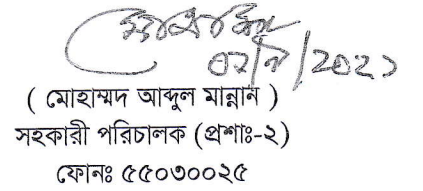 ০২/৭/২০২১
( মোহাম্মদ আব্দুল মান্নান )
সহকারী পরিচালক (প্রশাঃ-২)
ফোনঃ ৫৫০৩০০২৫